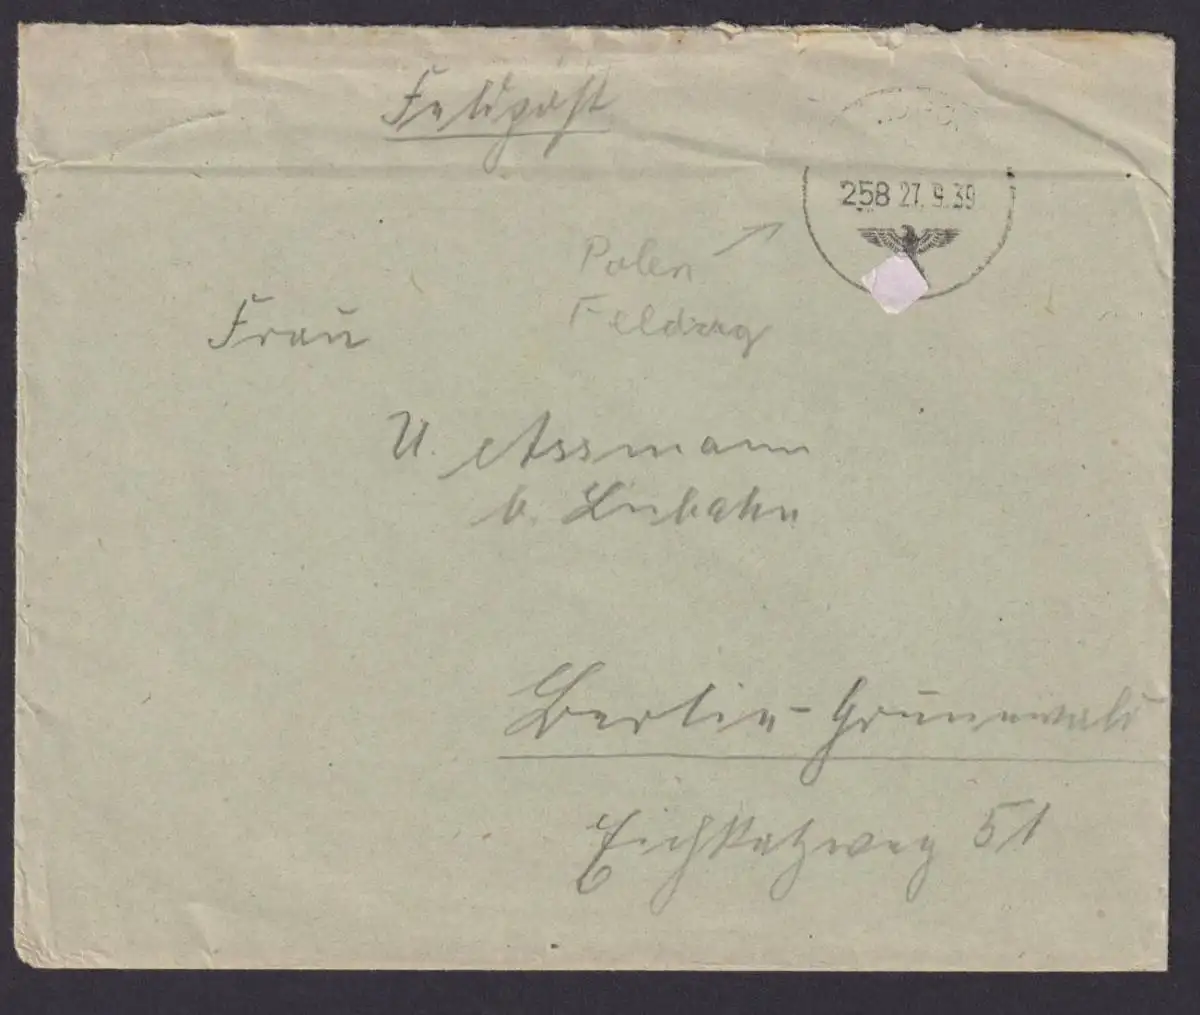 Feldpost
258 27. 9. 39
Polen
Feldzug
Frau
U. Assmann
b.
Berlin-Grunewald
Eichkatzweg 51